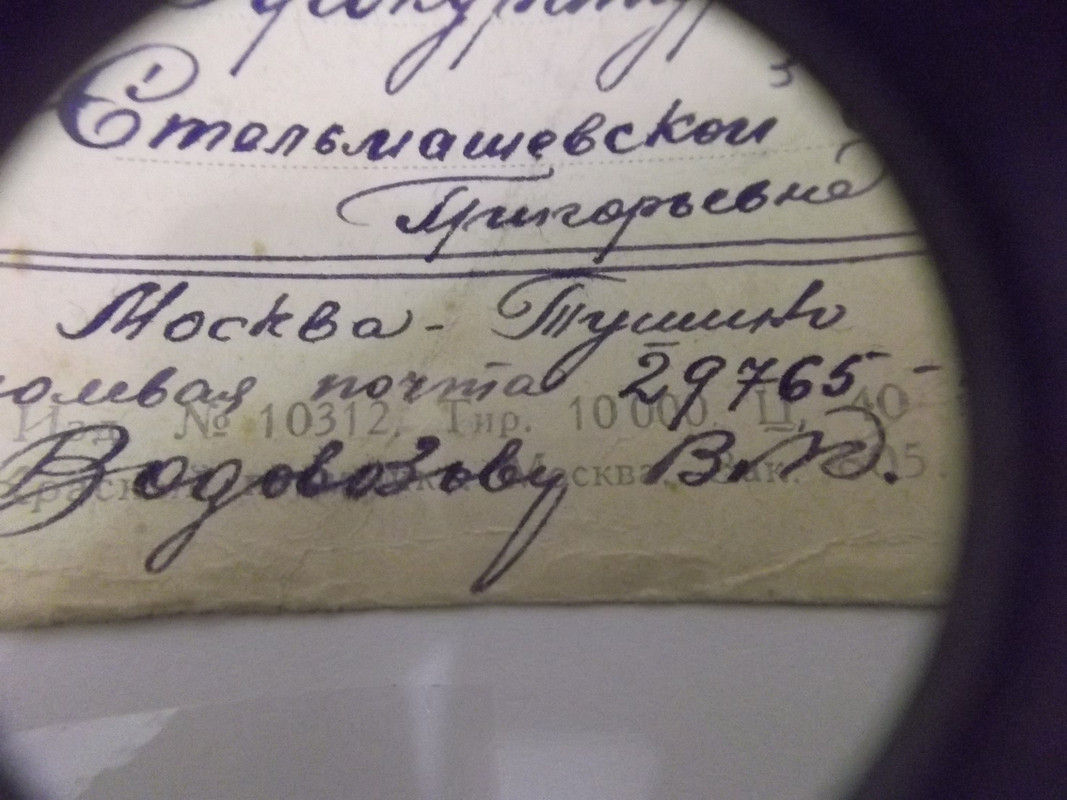 Стельмашевской
Григорьевне
Москва - Тушино
почта 29765 -
Изд. № 10312. Тир. 10 000. Ц. 40
Водовозову В. Д.
Москва. Зак.